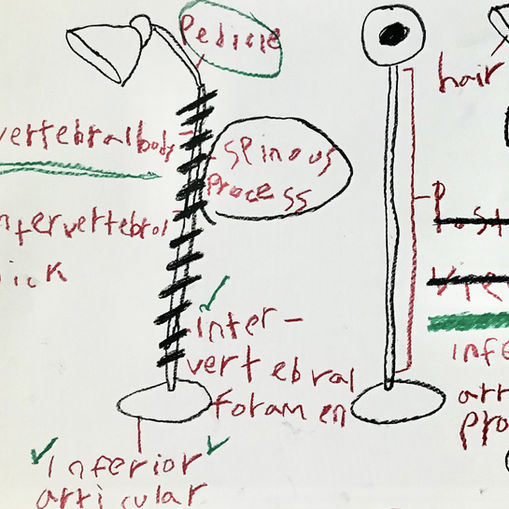 Pedicle
vertebral body
spinous
process
ntervertebral
ick
Inter-
vertebral
foramen
Inferior
articular
hair
P
infe
art
pro